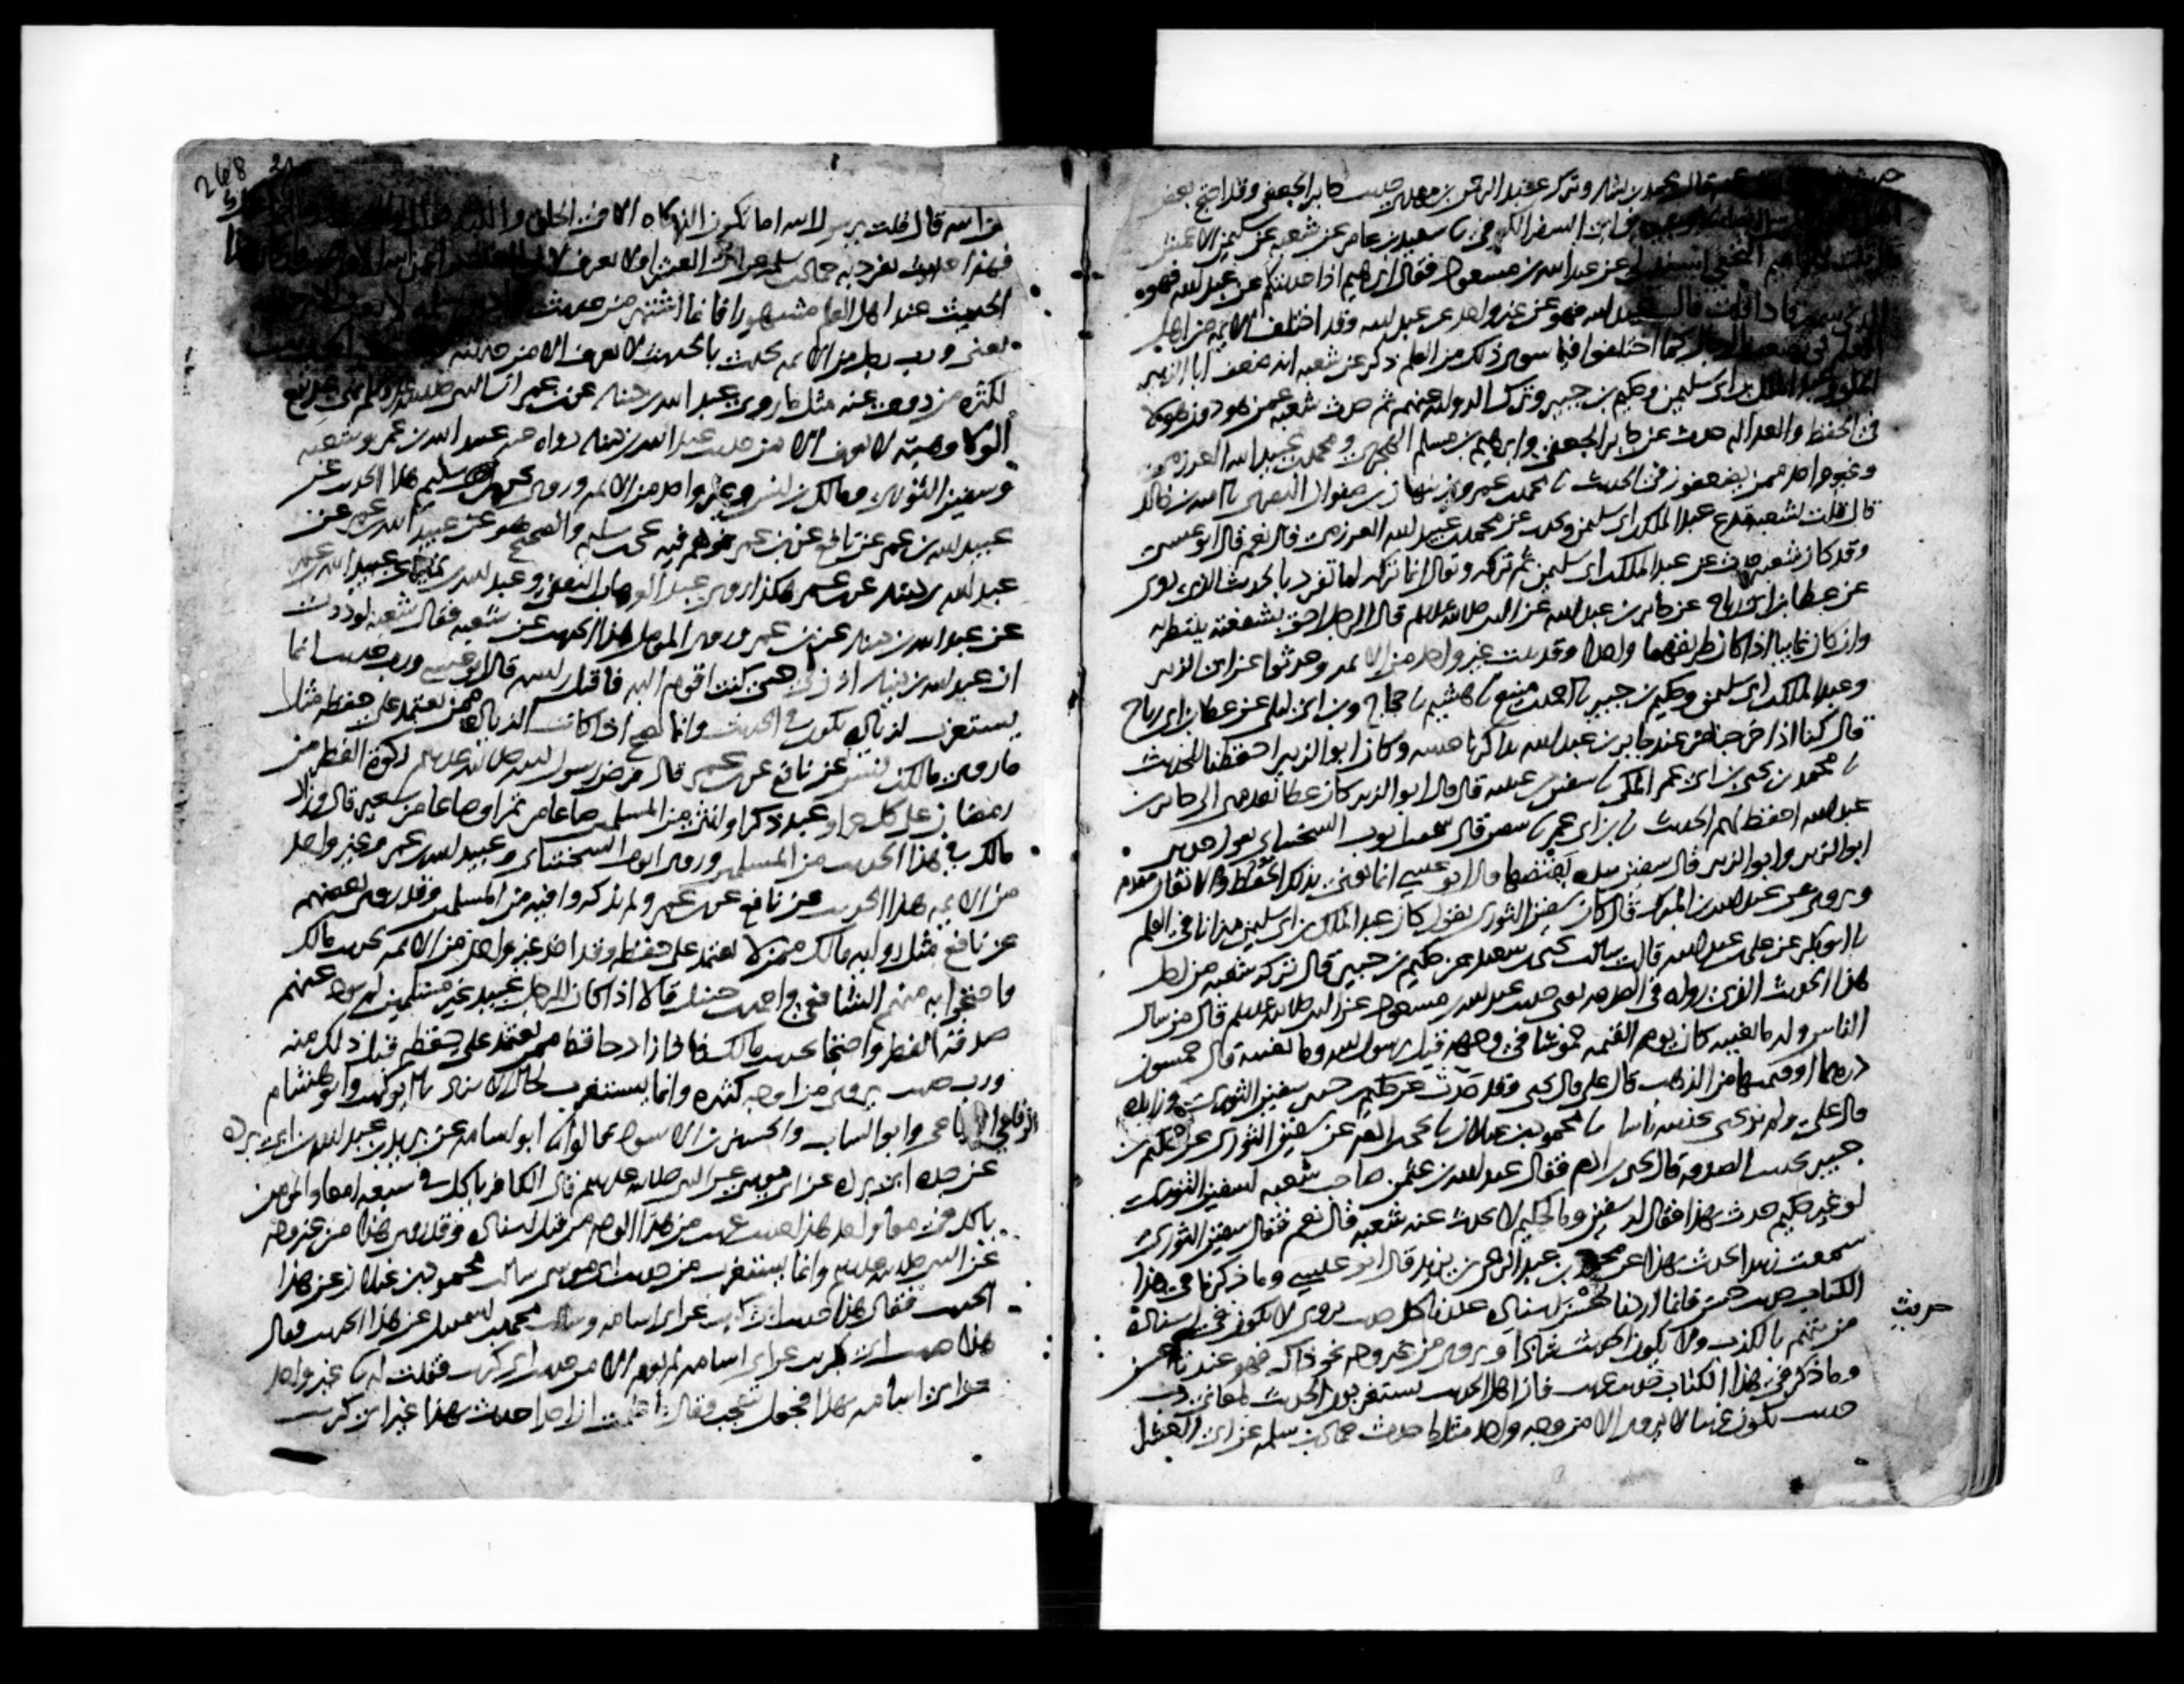 قال محمد بن بشار وترك عبد الرحمن بن مهدي حديث جابر الجعفي وقد احتج بعض
بن ابي السفر الكوفي نا سعيد بن عامر عن شعبة عن سليمن الاعمش
قال قلت لابراهيم النخعي اسند لي عن عبد الله بن مسعود فقال ابرهيم اذا حدثتكم عن عبد الله فهو
الذي سمعت واذا قلت قال عبد الله فهو عن غير واحد عن عبد الله وقد اختلف الايمه من اهل
العلم في تضعيف الرجال كما اختلفوا فيما سوى ذلك من العلم ذكر عن شعبه انه ضعف ابا الزبير
المكي وعبد الملك بن ابي سليمن وحكيم بن جبير وترك الروايه عنهم ثم حدث شعبه عمن هو دون هولا
في الحفظ والعداله حدث عن جابر الجعفي وابرهيم بن مسلم الهجري ومحمد بن عبيد الله العرزمي
وغير واحد ممن يضعفون في الحديث نا محمد بن عمرو بن نبهان بن صفوان البصري نا اميه بن خالد
قال قلت لشعبه تدع عبد الملك بن ابي سليمن وتحدث عن محمد بن عبيد الله العرزمي قال نعم قال ابو عيسى
وقد كان شعبه حدث عن عبد الملك بن ابي سليمن ثم تركه ويقال انما تركه لما تفرد بالحديث الذي روى
عن عطا بن ابي رباح عن جابر بن عبد الله عن النبي صلى الله عليه وسلم قال الرجل احق بشفعته ينتظر به
وان كان غايبا اذا كان طريقهما واحدا وقد ثبت غير واحد من الايمه وحدثوا عن ابي الزبير
وعبد الملك بن ابي سليمن وحكيم بن جبير نا احمد بن منيع نا هشيم نا حجاج وبن ابي ليلى عن عطا بن ابي رباح
قال كنا اذا خرجنا من عند جابر بن عبد الله تذاكرنا حديثه وكان ابو الزبير احفظنا للحديث
نا محمد بن يحيى بن ابي عمر المكي نا سفين بن عيينه قال قال ابو الزبير كان عطا يقدمني الى جابر بن
عبد الله احفظ لهم الحديث نا بن ابي عمر نا سفين قال سمعت ايوب السختياني يقول حدثني
ابو الزبير وابو الزبير قال سفين بيده يقبضها قال ابو عيسى انما يعني بذلك الحفظ والاتقان
ويروى عن عبد الله بن المبارك قال كان سفين الثوري يقول كان عبد الملك بن ابي سليمن ميزانا في العلم
نا ابو بكر عن علي بن عبد الله قال سالت يحيى بن سعيد عن حكيم بن جبير قال تركه شعبه من اجل
هذا الحديث الذي رواه في الصدقه يعني حديث عبد الله بن مسعود عن النبي صلى الله عليه وسلم قال من سال
الناس وله ما يغنيه كان يوم القيمه خموشا في وجهه قيل يرسول الله وما يغنيه قال خمسون
درهما او قيمتها من الذهب قال علي قال يحيى وقد حدث عن حكيم بن جبير سفين الثوري وزايده
قال علي ولم ير يحيى بحديثه باسا نا محمود بن غيلان نا يحيى بن ادم عن سفين الثوري عن حكيم بن
جبير بحديث الصدقه قال يحيى بن ادم فقال عبد الله بن عثمن صاحب شعبه لسفين الثوري
لو غير حكيم حدث بهذا فقال له سفين وما لحكيم لا يحدث عنه شعبه قال نعم فقال سفين الثوري
سمعت زبيدا يحدث بهذا عن محمد بن عبد الرحمن بن يزيد قال ابو عيسى وما ذكرنا في هذا
الكتاب حديث حسن فانما اردنا حسن اسناده عندنا كل حديث يروى لا يكون في اسناده
حديث
من يتهم بالكذب ولا يكون الحديث شاذا ويروى من غير وجه نحو ذاك فهو عندنا حسن
وما ذكر في هذا الكتاب حديث غريب فان اهل الحديث يستغربون الحديث لمعاني رب
حديث يكون غريبا لا يروى الا من وجه واحد مثل ما حدث حماد بن سلمه عن ابي العشرا
268
عن ابيه قال قلت يرسول الله اما تكون الذكاه الا في الحلق واللبه
فهذا حديث تفرد به حماد بن سلمه عن ابي العشرا ولا يعرف لابي العشرا عن ابيه الا هذا
الحديث عند اهل العلم مشهورا فانما اشتهر من حديث حماد بن سلمه لا يعرف الا من حديثه
يعني ورب رجل من الايمه يحدث بالحديث لا يعرف الا من حديثه
لكثره من روى عنه مثل ما روى عبد الله بن دينار عن بن عمر ان النبي صلى الله عليه وسلم نهى عن بيع
الولا وهبته لا يعرف الا من حديث عبد الله بن دينار رواه عنه عبيد الله بن عمر وشعبه
وسفين الثوري ومالك بن انس وغير واحد من الايمه وروى يحيى بن سليم هذا الحديث عن
عبيد الله بن عمر عن نافع عن بن عمر فوهم فيه يحيى بن سليم والصحيح هو عن عبيد الله بن عمر عن
عبد الله بن دينار عن بن عمر هكذا روى عبد الوهاب الثقفي وعبد الله بن نمير عن عبيد الله بن عمر
عن عبد الله بن دينار عن بن عمر وروى المومل هذا الحديث عن شعبه فقال شعبه لوددت
ان عبد الله بن دينار اذن لي حتى كنت اقوم اليه فاقبل راسه قال ابو عيسى ورب حديث انما
يستغرب لزياده تكون في الحديث وانما يصح اذا كانت الزياده ممن يعتمد على حفظه مثل
ما روى مالك بن انس عن نافع عن بن عمر قال فرض رسول الله صلى الله عليه وسلم زكوة الفطر من
رمضان على كل حر او عبد ذكر او انثى من المسلمين صاعا من تمر او صاعا من شعير قال وزاد
مالك في هذا الحديث من المسلمين وروى ايوب السختياني وعبيد الله بن عمر وغير واحد
من الايمه هذا الحديث عن نافع عن بن عمر ولم يذكروا فيه من المسلمين وقد روى بعضهم
عن نافع مثل روايه مالك ممن لا يعتمد على حفظه وقد اخذ غير واحد من الايمه بحديث مالك
واحتجوا به منهم الشافعي واحمد بن حنبل قالا اذا كان للرجل عبيد غير مسلمين لم يود عنهم
صدقة الفطر واحتجا بحديث مالك فاذا زاد حافظ ممن يعتمد على حفظه قبل ذلك منه
ورب حديث يروى من اوجه كثيره وانما يستغرب لحال الاسناد نا ابو كريب وابو هشام
الرفاعي وابو السايب والحسين بن الاسود قالوا نا ابو اسامه عن بريد بن عبد الله بن ابي برده
عن جده ابي برده عن ابي موسى عن النبي صلى الله عليه وسلم قال الكافر ياكل في سبعه امعا والمومن
ياكل في معا واحد هذا حديث غريب من هذا الوجه من قبل اسناده وقد روى هذا من غير وجه
عن النبي صلى الله عليه وسلم وانما يستغرب من حديث ابي موسى سالت محمود بن غيلان عن هذا
الحديث فقال هذا حديث ابي كريب عن ابي اسامه وسالت محمد بن اسمعيل عن هذا الحديث فقال
هذا حديث ابي كريب عن ابي اسامه لم نعرفه الا من حديث ابي كريب فقلت له نا غير واحد
عن ابي اسامه بهذا فجعل يتعجب وقال ما علمت ان احدا حدث بهذا غير ابي كريب